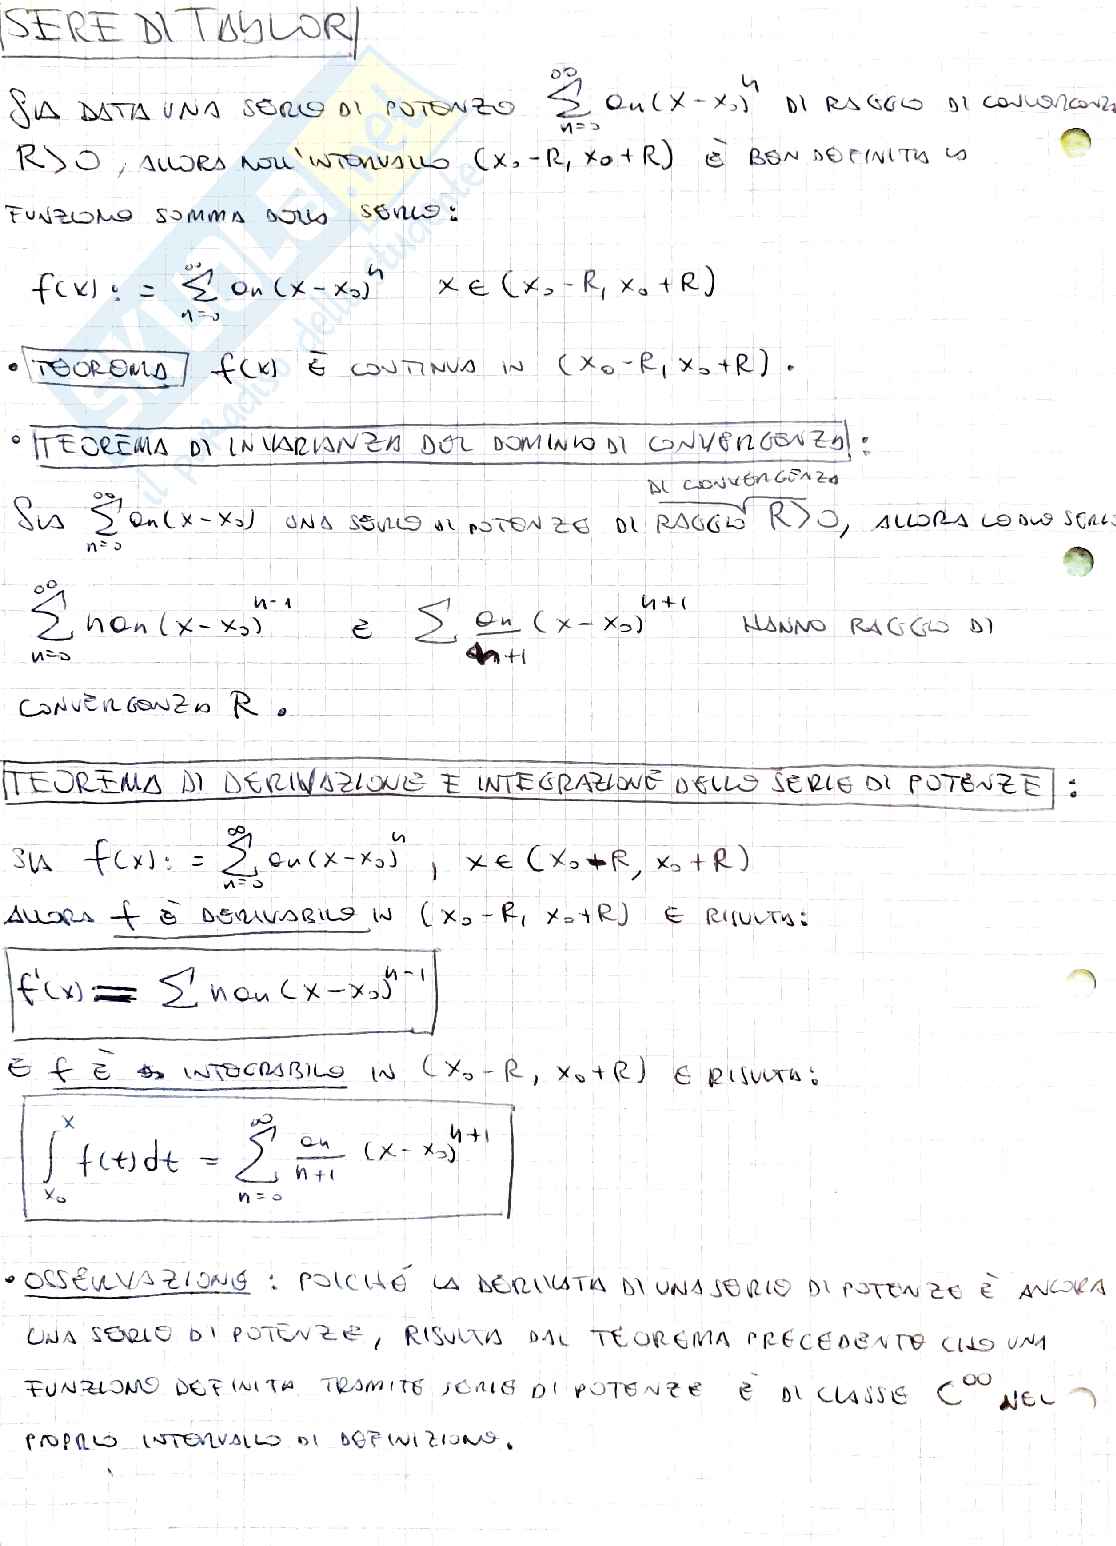 SERIE DI TAYLOR
SIA DATA UNA SERIE DI POTENZE ∑_{n=0}^{∞} an(x-x₀)^n DI RAGGIO DI CONVERGENZA
R>0, ALLORA NELL'INTERVALLO (x₀-R, x₀+R) È BEN DEFINITA LA
FUNZIONE SOMMA DELLA SERIE:
f(x) := ∑_{n=0}^{∞} an(x-x₀)^n x∈(x₀-R, x₀+R)
• TEOREMA f(x) È CONTINUA IN (x₀-R, x₀+R).
• TEOREMA DI INVARIANZA DEL DOMINIO DI CONVERGENZA:
DI CONVERGENZA
SIA ∑_{n=0}^{∞} an(x-x₀) UNA SERIE DI POTENZE DI RAGGIO R>0, ALLORA LE DUE SERIE
∑_{n=0}^{∞} n an(x-x₀)^{n-1} E ∑ an/(n+1) (x-x₀)^{n+1} HANNO RAGGIO DI
CONVERGENZA R.
TEOREMA DI DERIVAZIONE E INTEGRAZIONE DELLE SERIE DI POTENZE:
SIA f(x) := ∑_{n=0}^{∞} an(x-x₀)^n, x∈(x₀-R, x₀+R)
ALLORA f È DERIVABILE IN (x₀-R, x₀+R) E RISULTA:
f'(x) = ∑ n an(x-x₀)^{n-1}
E f È INTEGRABILE IN (x₀-R, x₀+R) E RISULTA:
∫_{x₀}^{x} f(t)dt = ∑_{n=0}^{∞} an/(n+1) (x-x₀)^{n+1}
• OSSERVAZIONE: POICHÉ LA DERIVATA DI UNA SERIE DI POTENZE È ANCORA
UNA SERIE DI POTENZE, RISULTA DAL TEOREMA PRECEDENTE CHE UNA
FUNZIONE DEFINITA TRAMITE SERIE DI POTENZE È DI CLASSE C^∞ NEL
PROPRIO INTERVALLO DI DEFINIZIONE.
SKUOLA.net
il paradiso dello studente